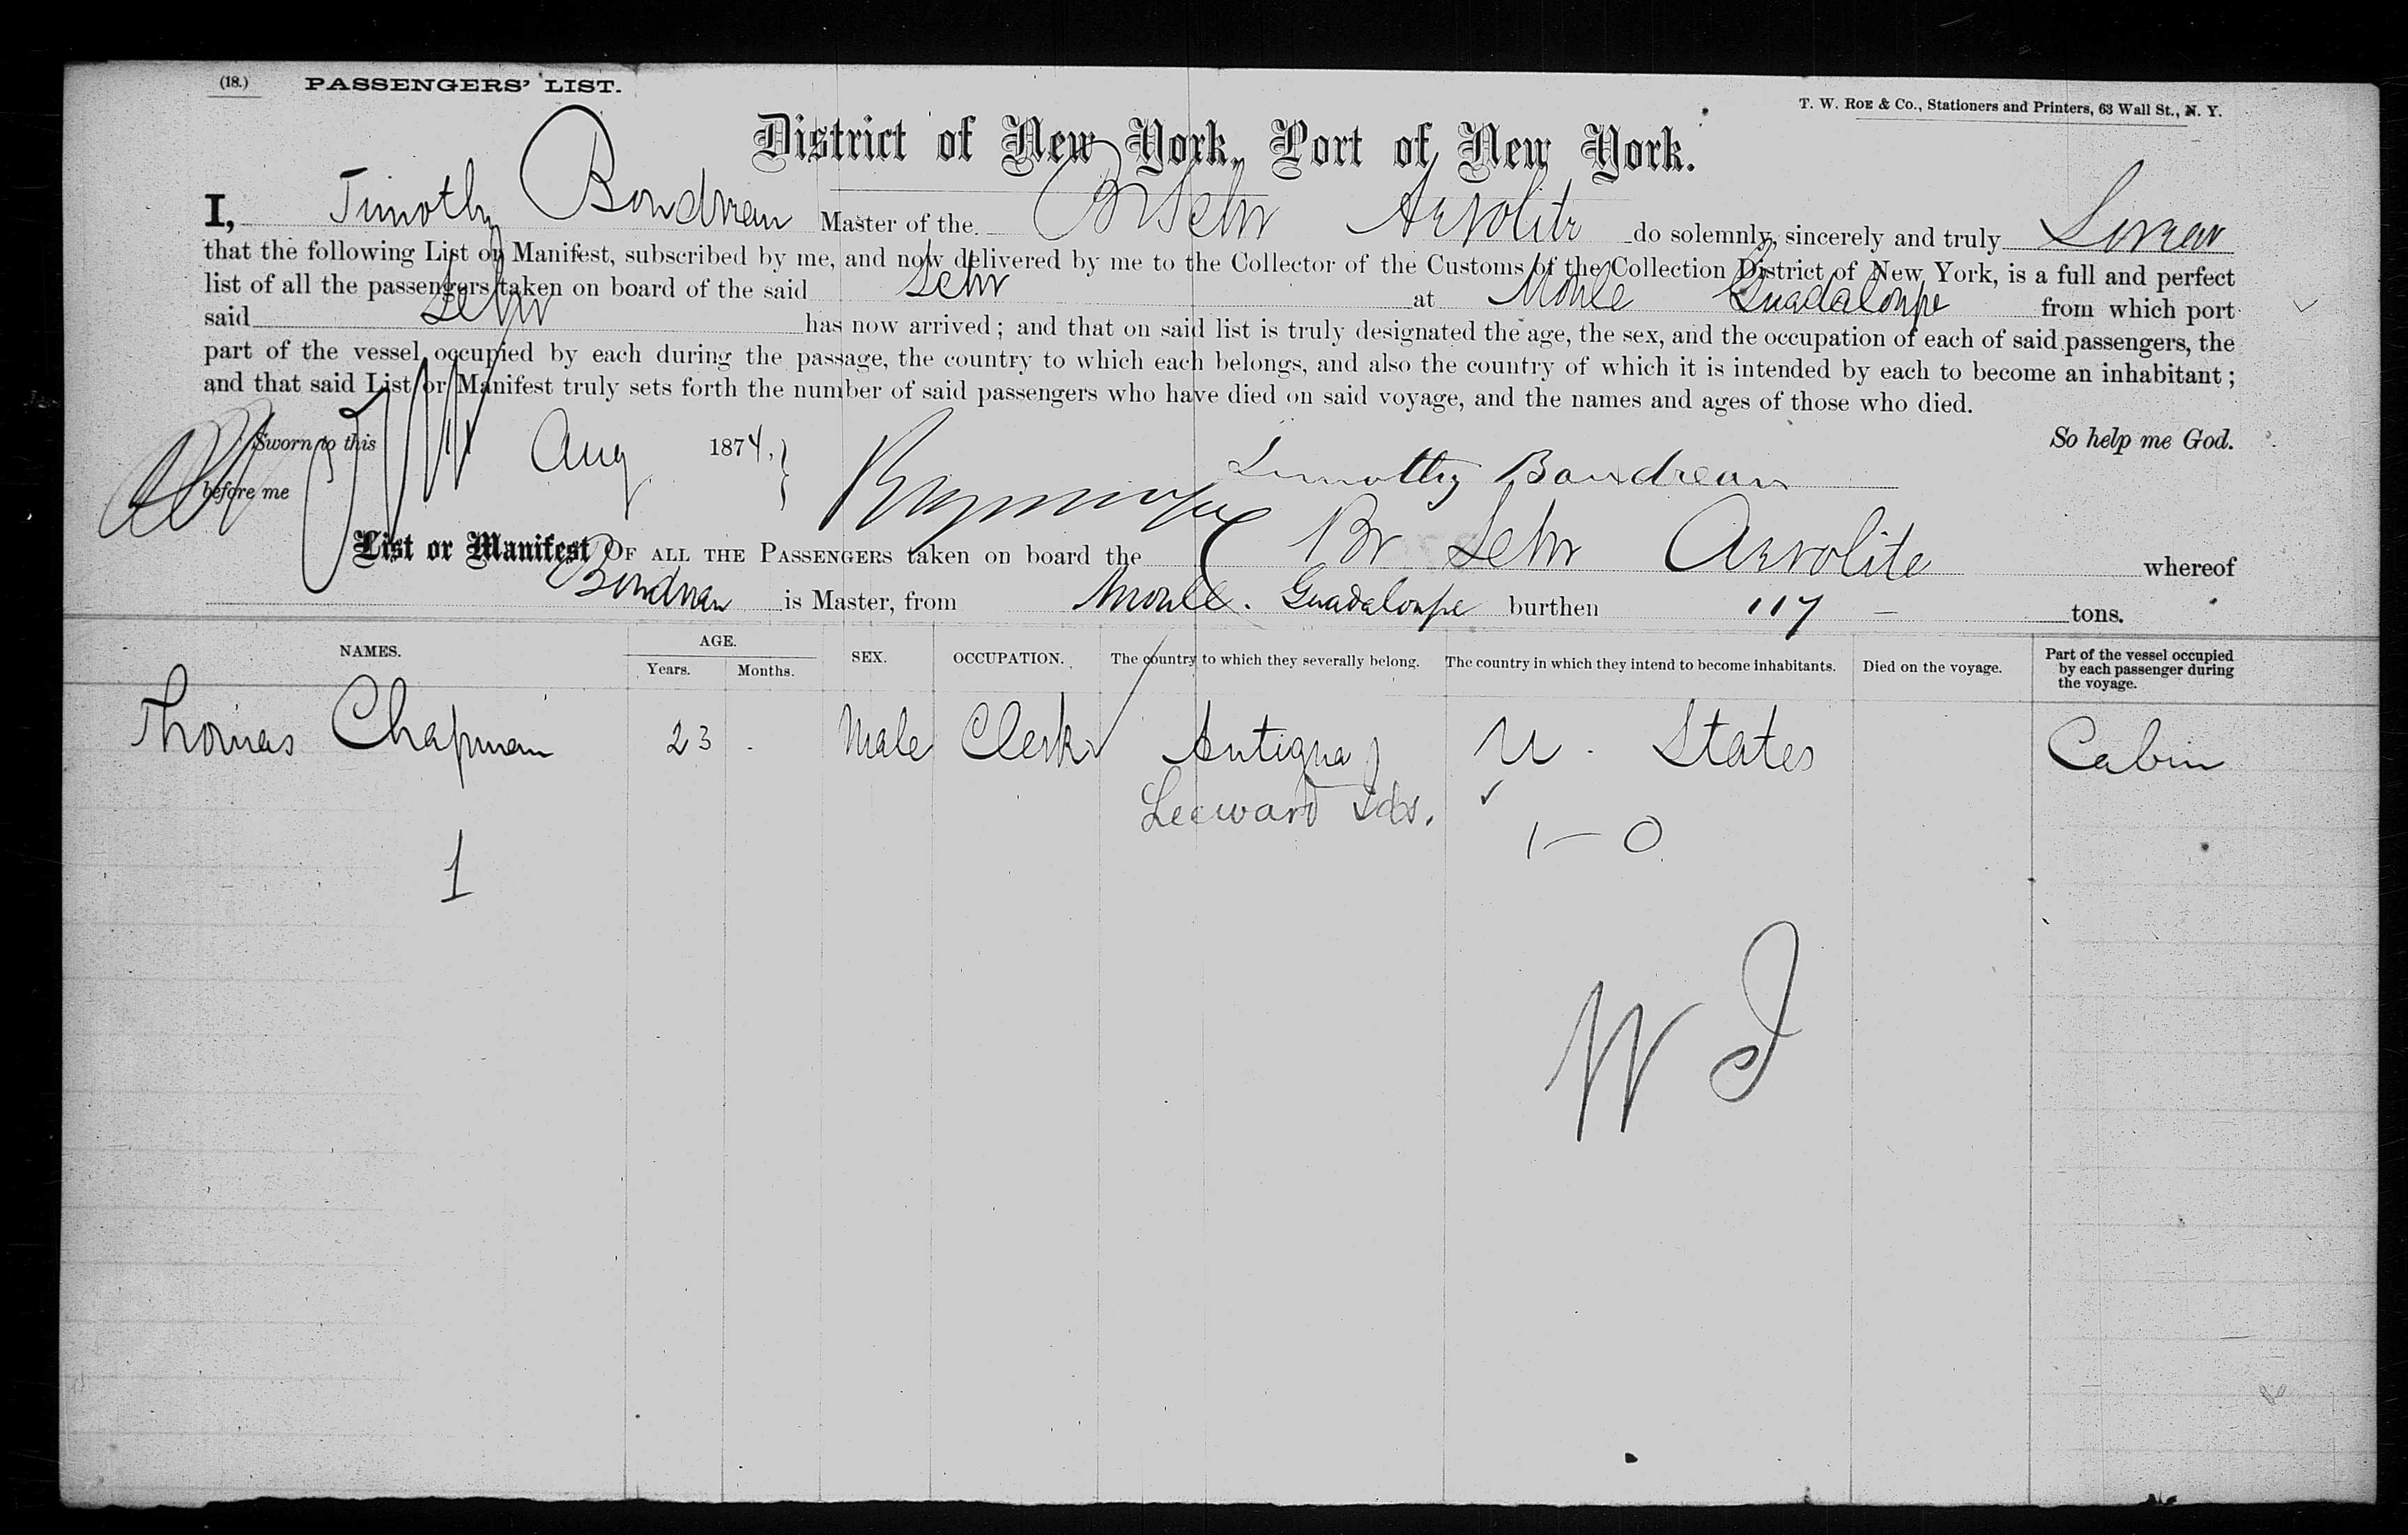 (18.) PASSENGERS' LIST.
T. W. ROE & Co., Stationers and Printers, 63 Wall St., N. Y.
District of New York, Port of New York.
I, Timothy Boudreau Master of the Br Schr Aerolite do solemnly, sincerely and truly Swear
that the following List or Manifest, subscribed by me, and now delivered by me to the Collector of the Customs of the Collection District of New York, is a full and perfect
list of all the passengers taken on board of the said Schr at Moule Guadaloupe from which port
said Schr has now arrived; and that on said list is truly designated the age, the sex, and the occupation of each of said passengers, the
part of the vessel occupied by each during the passage, the country to which each belongs, and also the country of which it is intended by each to become an inhabitant;
and that said List or Manifest truly sets forth the number of said passengers who have died on said voyage, and the names and ages of those who died.
Sworn to this Aug 1874, So help me God.
before me Timothy Boudreau
List or Manifest OF ALL THE PASSENGERS taken on board the Br Schr Aerolite whereof
Boudreau is Master, from Moule. Guadaloupe burthen 117 tons.
NAMES. AGE. Years. Months. SEX. OCCUPATION. The country to which they severally belong. The country in which they intend to become inhabitants. Died on the voyage. Part of the vessel occupied by each passenger during the voyage.
Thomas Chapman 23 Male Clerk Antigua U. States Cabin
Leeward Ids.
1 - 0
1
W I